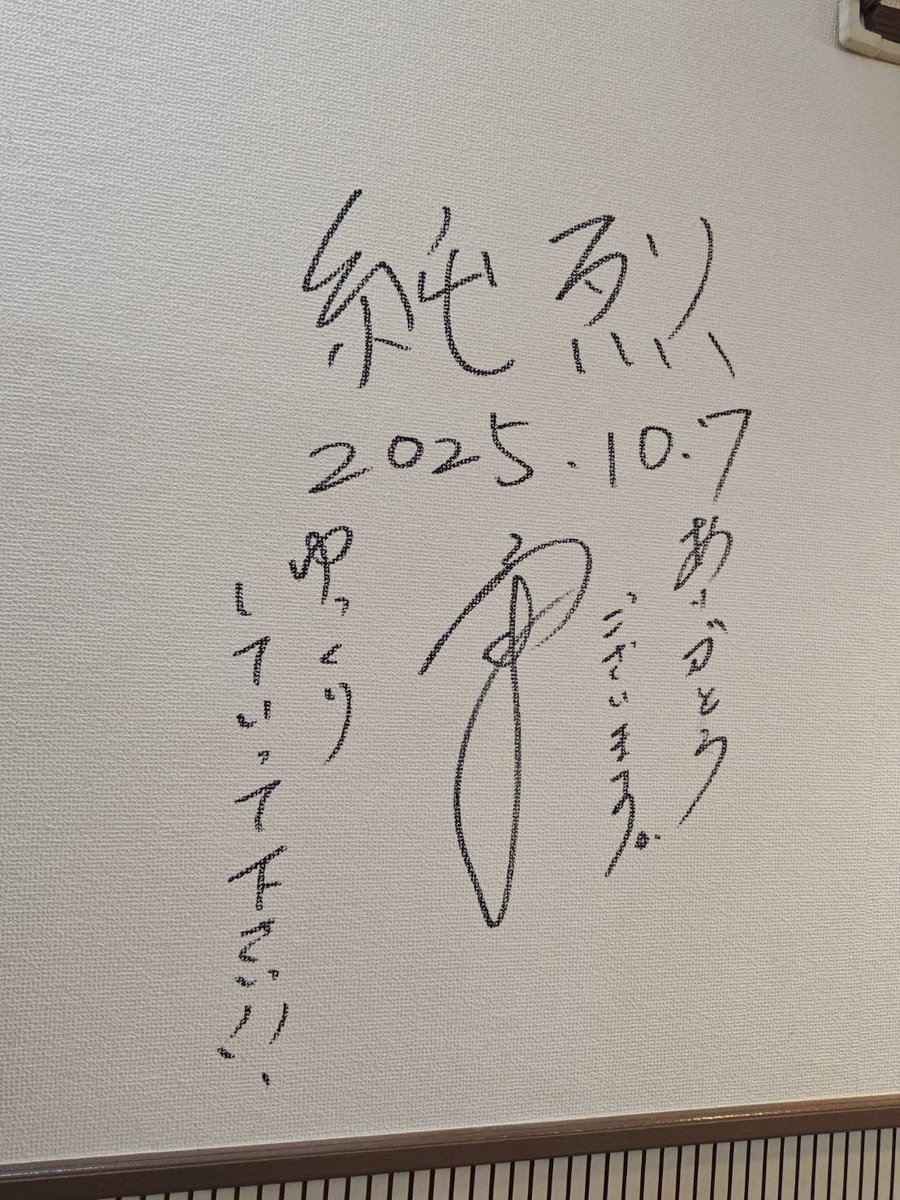 純烈
2025.10.7
ありがとう
ございます。
ゆっくり
していって下さい!!